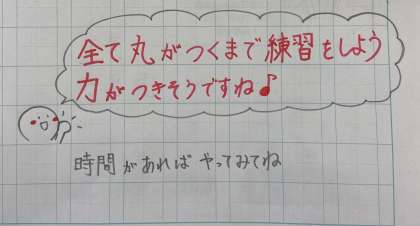 全て丸がつくまで練習をしよう
力がつきそうですね♪
時間があればやってみてね